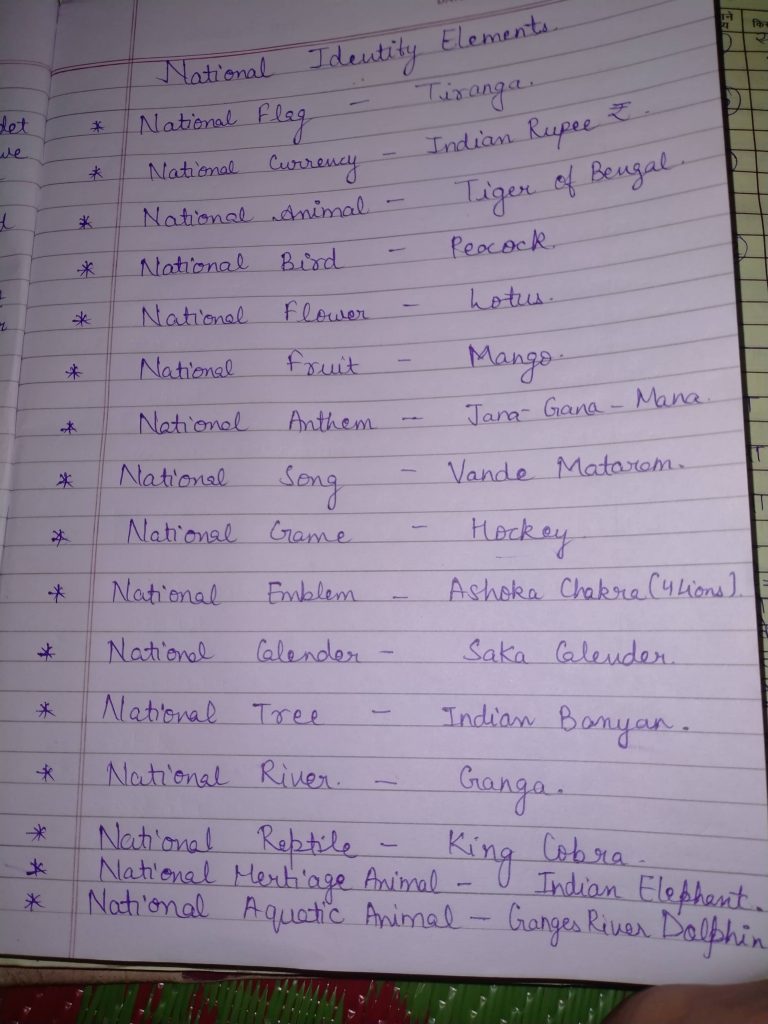 National Identity Elements.
* National Flag - Tiranga.
* National Currency - Indian Rupee ₹.
* National Animal - Tiger of Bengal.
* National Bird - Peacock.
* National Flower - Lotus.
* National Fruit - Mango.
* National Anthem - Jana-Gana-Mana.
* National Song - Vande Mataram.
* National Game - Hockey
* National Emblem - Ashoka Chakra (4 Lions).
* National Calender - Saka Calender.
* National Tree - Indian Banyan.
* National River. - Ganga.
* National Reptile - King Cobra.
* National Hertiage Animal - Indian Elephant.
* National Aquatic Animal - Ganges River Dolphin